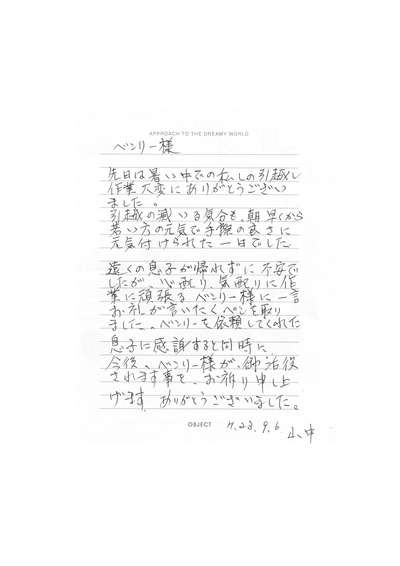 APPROACH TO THE DREAMY WORLD
ベンリー様
先日は暑い中での私しの引越し
作業大変にありがとうござい
ました。
引越の滅いる気分も、朝早くから
若い方の元気で手際の良さに
元気付けられた一日でした
遠くの息子が帰れずに不安で
したが、心配り、気配りに作
業に頑張るベンリー様に一言
お礼が言いたくペンを取り
ました。ベンリーを依頼してくれた
息子に感謝すると同時に、
今後、ベンリー様が、御活役
されます事を、お祈り申し上
げます ありがとうございました。
OBJECT
H.23.9.6
山中